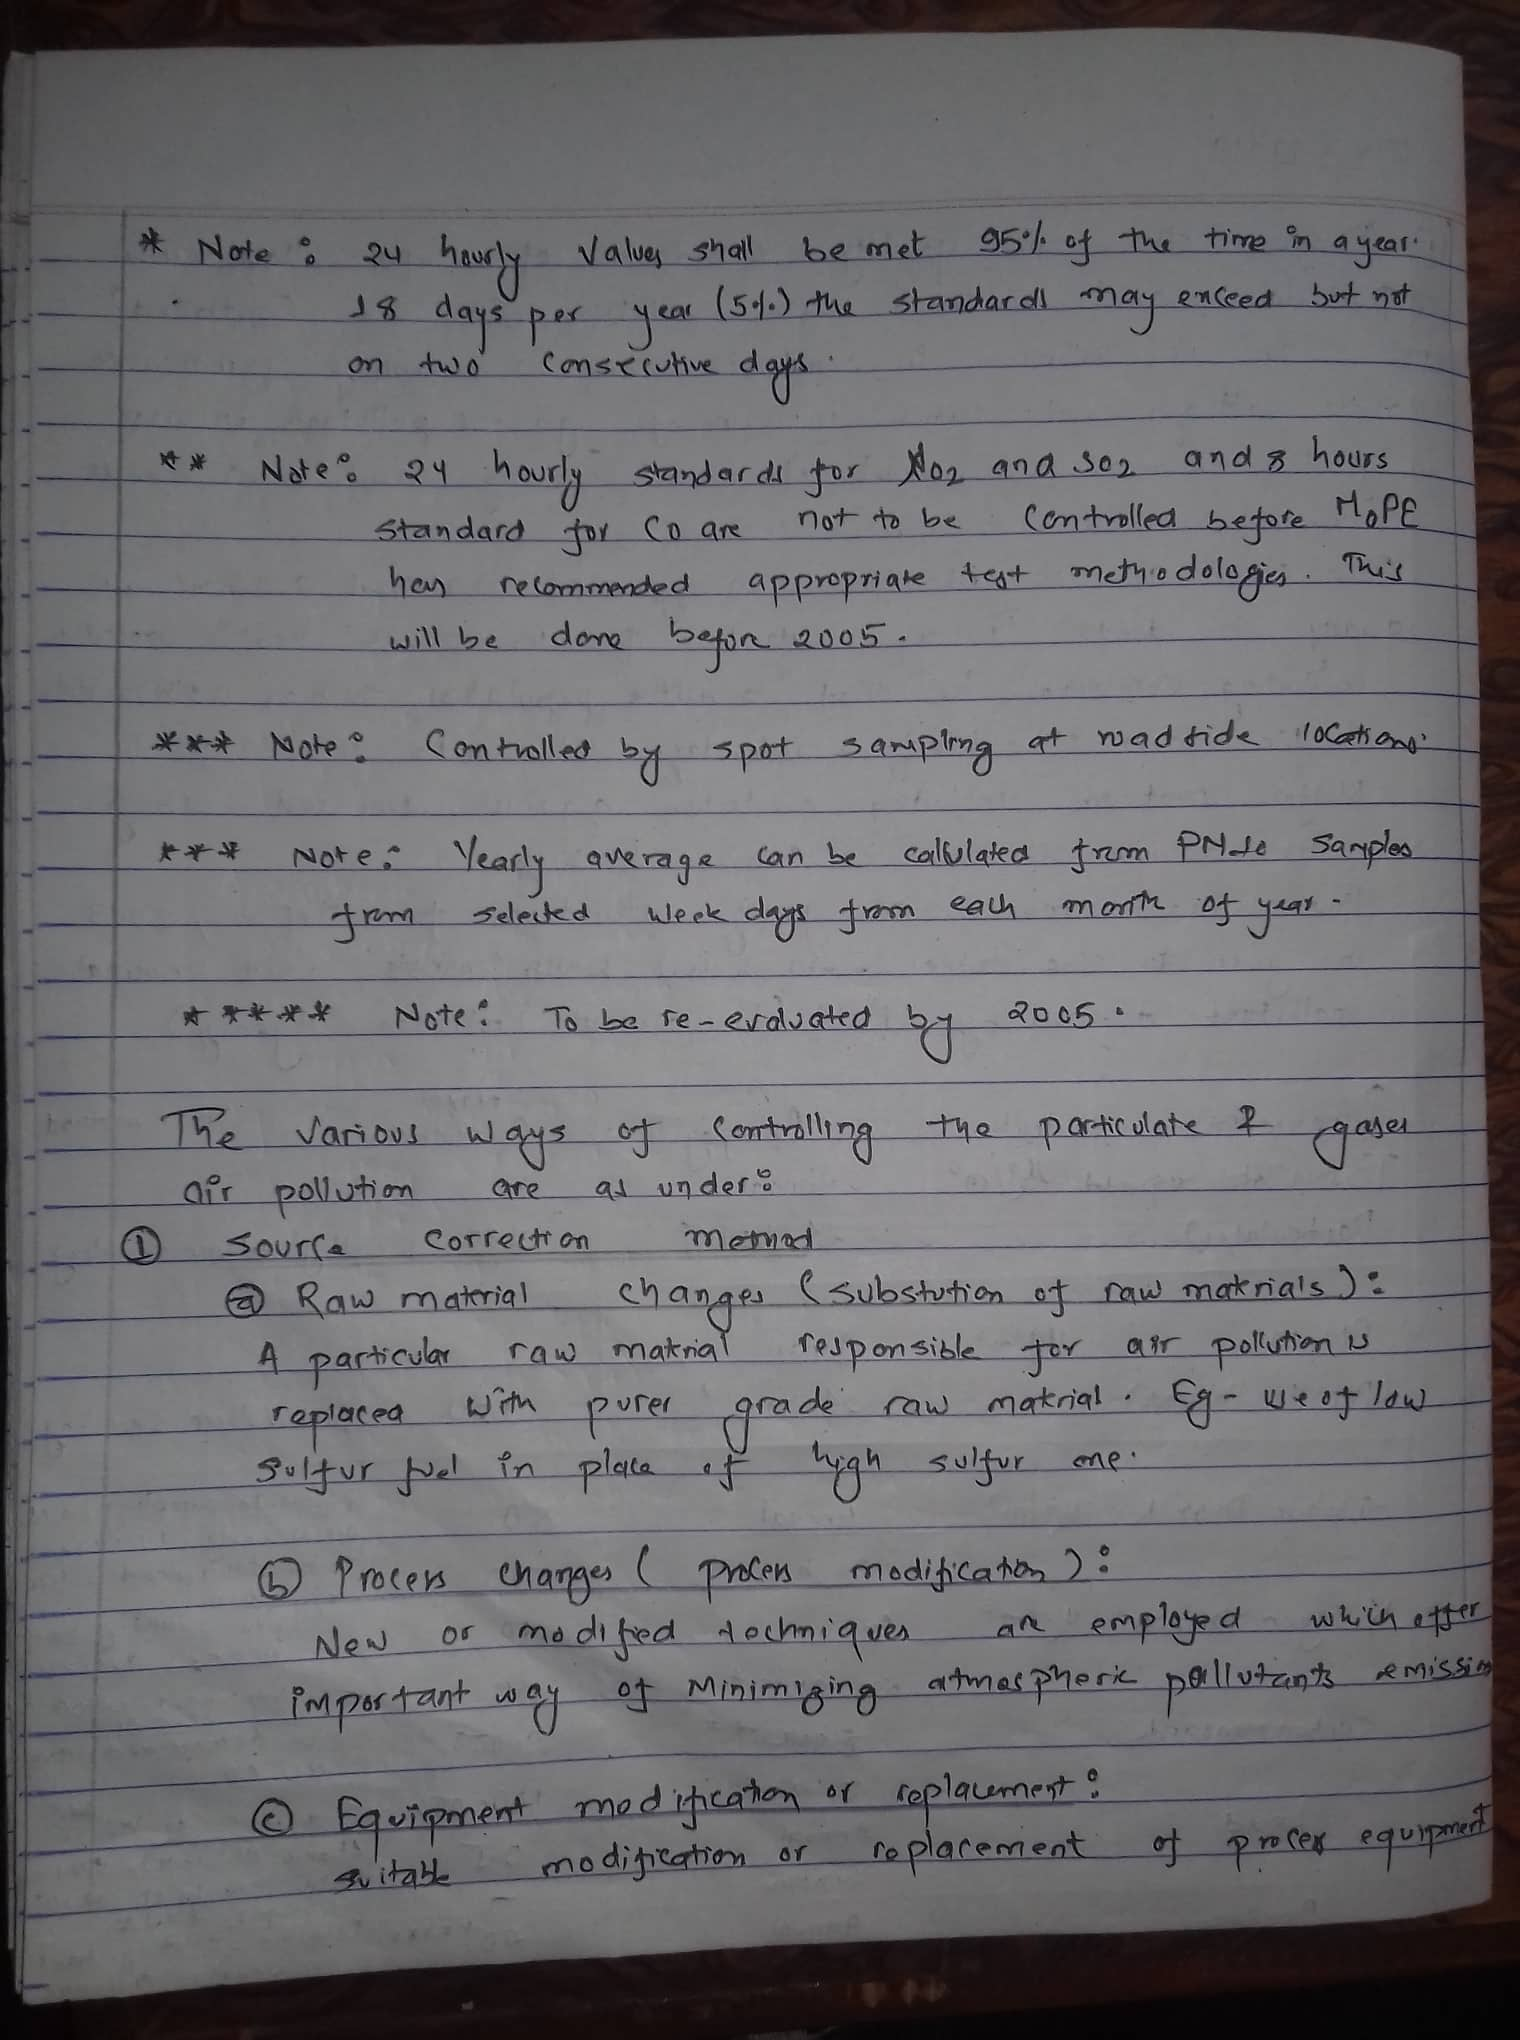 * Note : 24 hourly values shall be met 95% of the time in a year.
18 days per year (5%) the standards may exceed but not
on two consecutive days.
** Note: 24 hourly standards for NO2 and SO2 and 8 hours
standard for CO are not to be controlled before MoPE
has recommended appropriate test methodologies. This
will be done before 2005.
*** Note: Controlled by spot sampling at roadside locations.
*** Note: Yearly average can be calculated from PM10 samples
from selected week days from each month of year.
***** Note: To be re-evaluated by 2005.
The various ways of controlling the particulate & gases
air pollution are as under:
① Source correction method
ⓐ Raw material changes (substution of raw materials):
A particular raw material responsible for air pollution is
replaced with purer grade raw material. Eg - use of low
sulfur fuel in place of high sulfur one.
ⓑ Process changes (process modification):
New or modified techniques are employed which offer
important way of Minimizing atmospheric pollutants emission
ⓒ Equipment modification or replacement:
suitable modification or replacement of process equipment